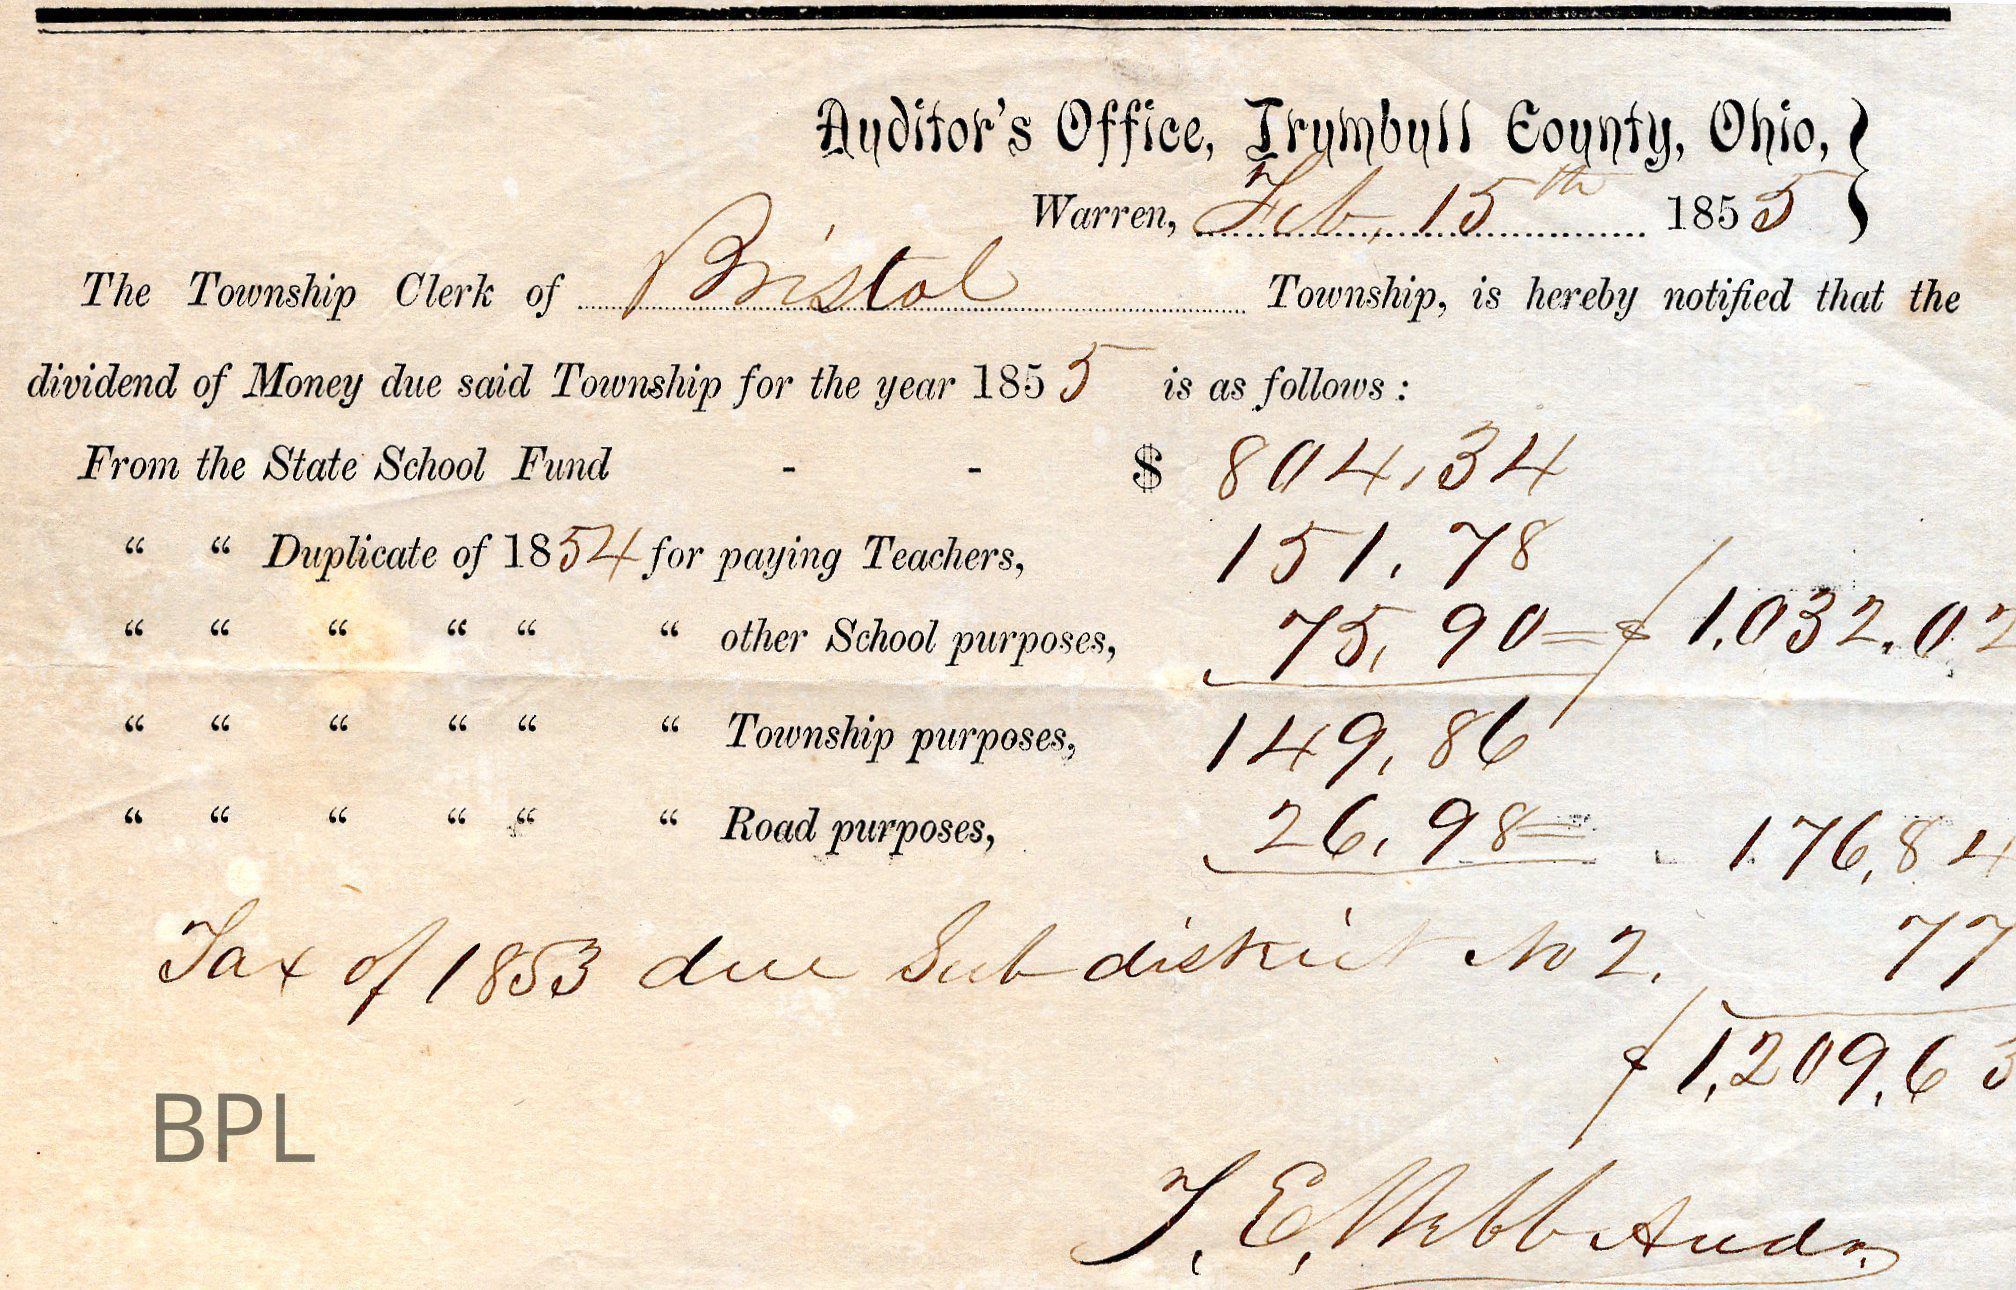 Auditor's Office, Trumbull County, Ohio,
Warren, Feb, 15th 1855
The Township Clerk of Bristol Township, is hereby notified that the
dividend of Money due said Township for the year 1855 is as follows :
From the State School Fund - - $ 804,34
“ “ Duplicate of 1854 for paying Teachers, 151,78
“ “ “ “ “ “ other School purposes, 75,90 = $ 1,032,02
“ “ “ “ “ “ Township purposes, 149,86
“ “ “ “ “ “ Road purposes, 26,98 = 176,84
Tax of 1853 due Sub district No 2. 77
$ 1,209,63
BPL
T, E, Webb Audr.